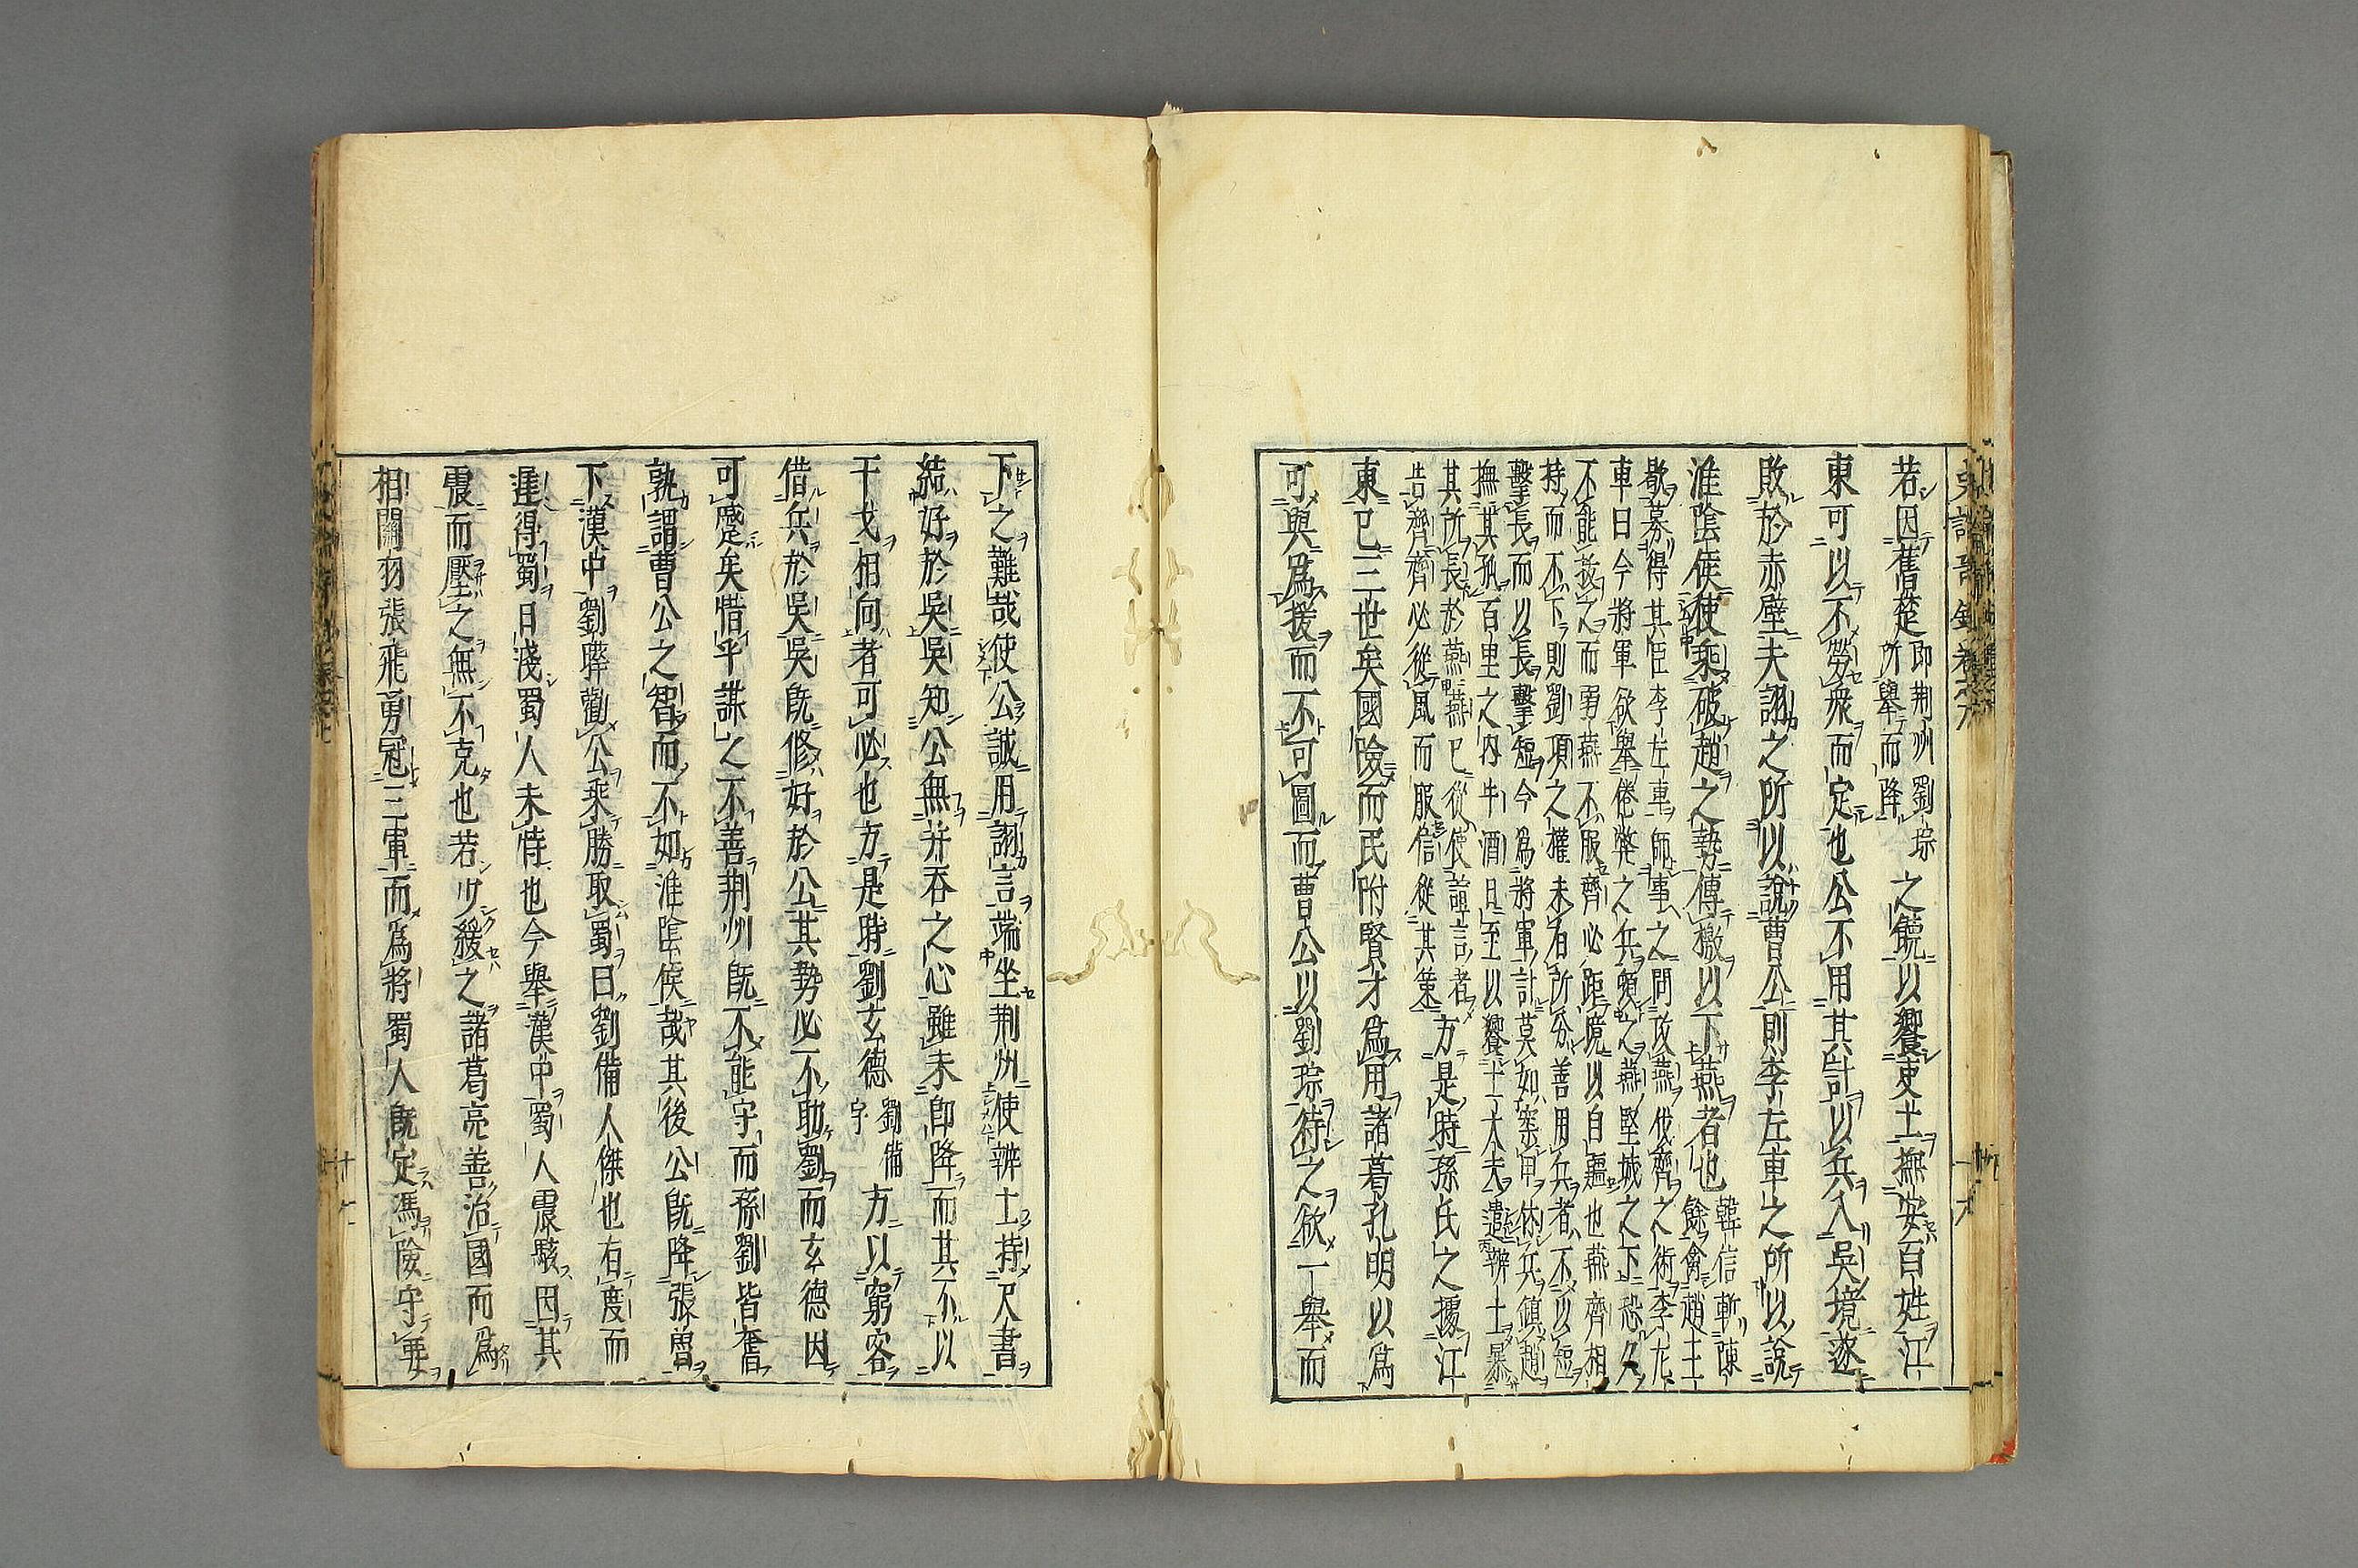 史論奇鈔卷之六
若因舊楚即荊州劉琮之饒以饗吏士撫安百姓江
所舉而降
東可以不勞衆而定也公不用其計以兵入吳境遂
敗於赤壁夫詡之所以說曹公則李左車之所以說
淮陰侯使乘破趙之勢傳檄以下燕者也韓信斬陳
餘禽趙王
歇募得其臣李左車師事之問攻燕伐齊之術李左
車曰今將軍欲舉倦獘之兵頓之燕堅城之下恐久
不能拔之而弱燕不服齊必距境以自疆也燕齊相
持而不下則劉項之權未有所分善用兵者不以短
擊長而以長擊短今爲將軍計莫如案甲休兵鎮趙
撫其孤百里之内牛酒日至以饗士大夫遣辨士暴
其所長於燕燕已從使諠言者
告齊齊必從風而服信從其策方是時孫氏之據江
東已三世矣國險而民附賢才爲用諸葛孔明以爲
可與爲援而不可圖而曹公以劉琮待之欲一舉而
下之難哉使公誠用詡言端坐荊州使辨士持尺書
結好於吳吳知公無并吞之心雖未即降而其不以
干戈相向者可必也方是時劉玄德劉備方以窮客
字
借兵於吳吳既修好於公其勢必不助劉而玄德因
可蹙矣惜乎謀之不善荊州既不能守而孫劉皆奮
孰謂曹公之智而不如淮陰侯哉其後公既降張魯
下漢中劉曄勸公乘勝取蜀曰劉備人傑也有度而
遲得蜀日淺蜀人未恃也今舉漢中蜀人震駭因其
震而壓之無不克也若少緩之諸葛亮善治國而爲
相關羽張飛勇冠三軍而爲將蜀人既定馮險守要